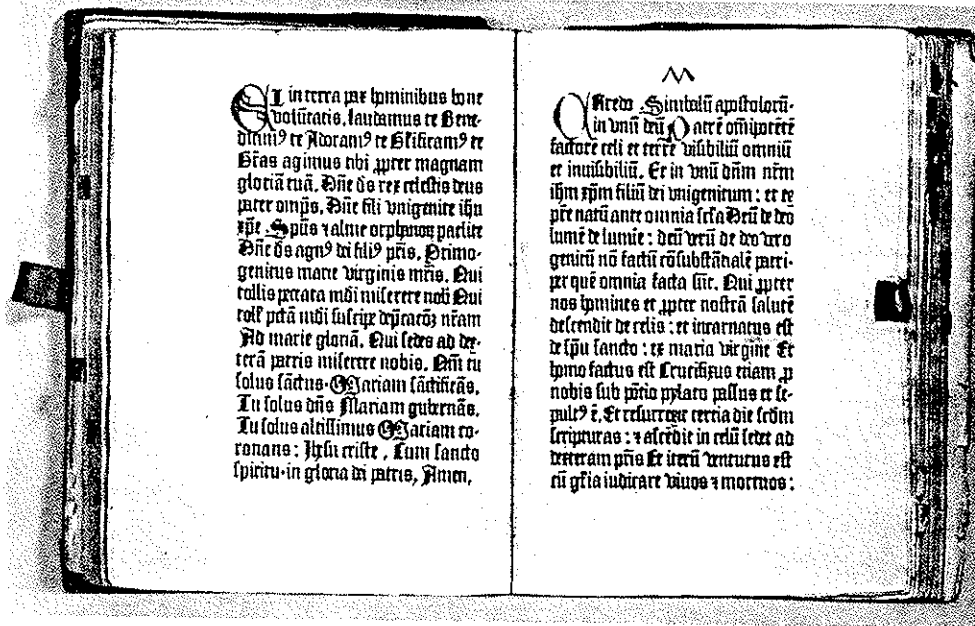 ET in terra pax hominibus bone
volūtatis. laudamus te Bene-
dicimꝰ te Adoramꝰ te Gl̄ificamꝰ te
Gr̄as agimus tibi ꝓpter magnam
gloriā tuā. Dn̄e ds̄ rex celestis deus
pater omp̄s. Dn̄e fili vnigenite ihū
xp̄e Sp̄us ⁊ alme orphanoꝝ paclite
Dn̄e ds̄ agnꝰ dei filiꝰ pr̄is. Primo-
genitus marie virginis mr̄is. Qui
tollis peccata mūdi miserere nob̄ Qui
toll̄ pctā mūdi suscipe dep̄catōȝ nr̄am
Ad marie gloriā. Qui sedes ad dex-
terā patris miserere nobis. Qm̄ tu
solus sāctus. Mariam sāctificās.
Tu solus dn̄s Mariam gubernās.
Tu solus altissimus Mariam co-
ronans: Jhesu criste. Cum sancto
spiritu. in gloria dei patris, Amen.
M
Credo Simbolū apostolorū.
in vnū deū Patrē om̄ipotētē
factorē celi et terre visibiliū omniū
et inuisibiliū. Et in vnū dn̄m nr̄m
ihm̄ xp̄m filiū dei vnigenitum: et ex
pr̄e natū ante omnia scl̄a Deū de deo
lumē de lumīe: deū verū de deo vero
genitū nō factū cōsubstātialē patri.
per quē omnia facta sūt. Qui ꝓpter
nos homines et ꝓpter nostrā salutē
descendit de celis: et incarnatus est
de sp̄u sancto: ex maria virgine Et
homo factus est Crucifixus etiam ꝓ
nobis sub pōtio pylato passus et se-
pultꝰ ē. Et resurrexit tercia die scd̄m
scripturas: ⁊ ascēdit in celū sedet ad
dexteram pr̄is Et iterū venturus est
cū gl̄ia iudicare viuos ⁊ mortuos: